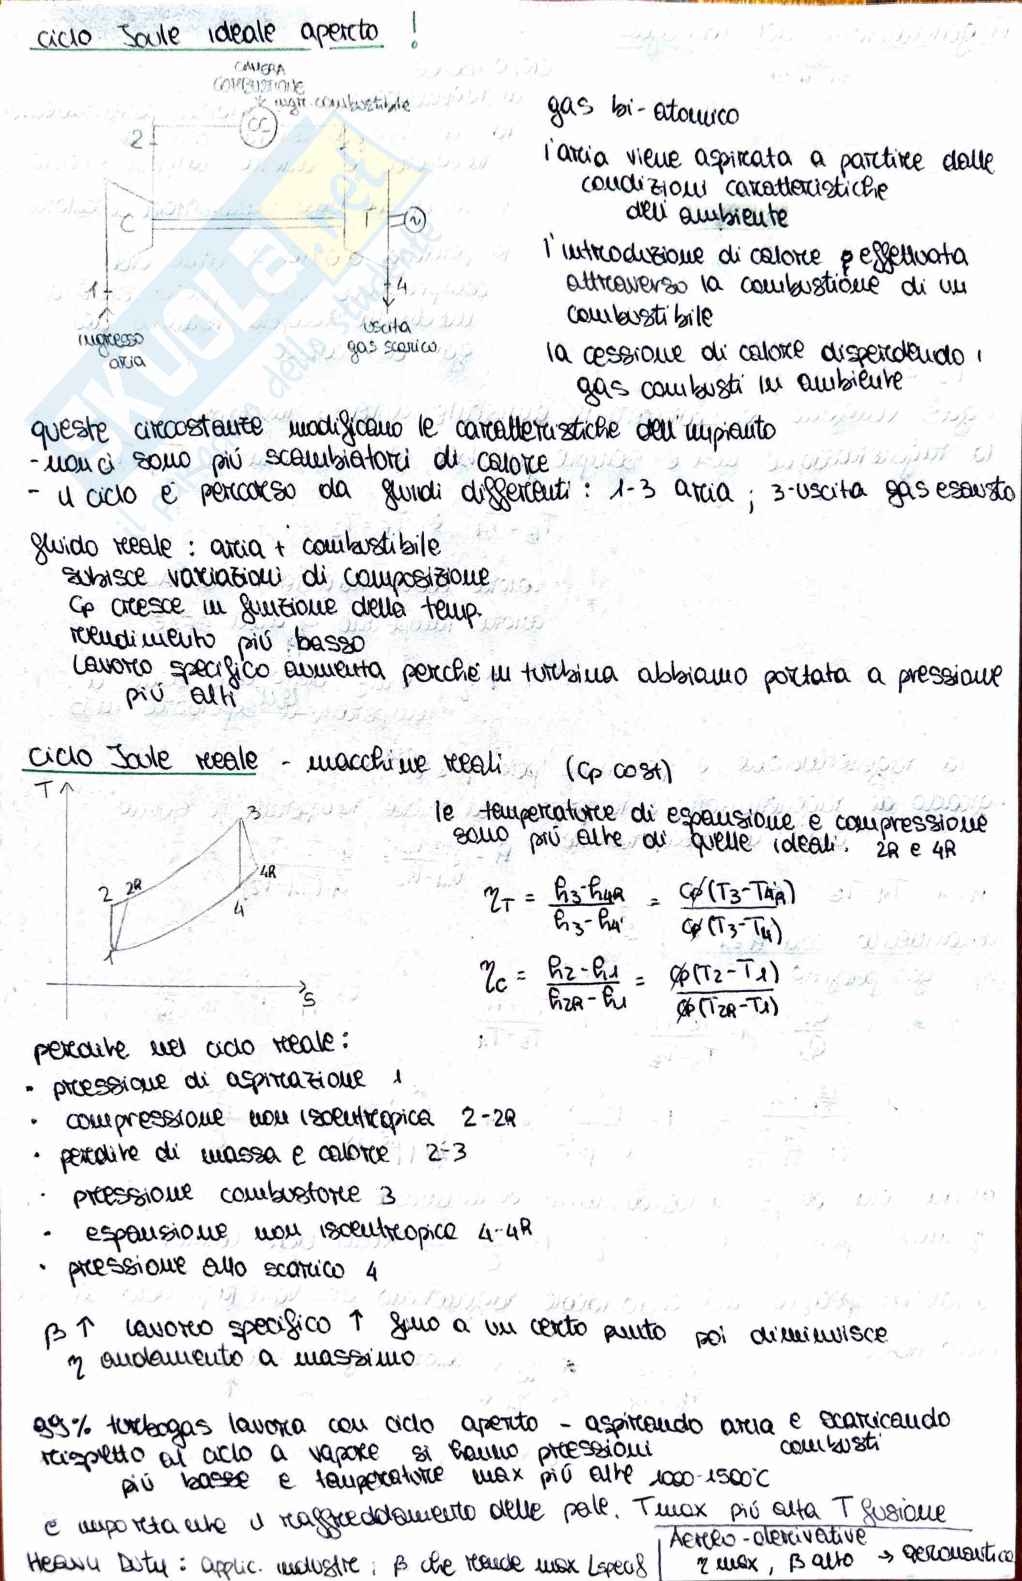 ciclo Joule ideale aperto !
CAMERA
COMBUSTIONE
ingr. combustibile
CC
2
C
T
~
1
4
ingresso
aria
uscita
gas scarico
gas bi-atomico
l'aria viene aspirata a partire dalle
condizioni caratteristiche
dell'ambiente
l'introduzione di calore è effettuata
attraverso la combustione di un
combustibile
la cessione di calore disperdendo i
gas combusti in ambiente
queste circostanze modificano le caratteristiche dell'impianto
- non ci sono più scambiatori di calore
- il ciclo è percorso da fluidi differenti : 1-3 aria ; 3-uscita gas esausto
fluido reale : aria + combustibile
subisce variazioni di composizione
Cp cresce in funzione della temp.
rendimento più basso
lavoro specifico aumenta perché in turbina abbiamo portata a pressione
più alti
ciclo Joule reale - macchine reali (Cp cost)
T
3
2 2R
4R
4
1
S
le temperature di espansione e compressione
sono più alte di quelle ideali. 2R e 4R
ηT = h3-h4R / h3-h4 = Cp(T3-T4R) / Cp(T3-T4)
ηc = h2-h1 / h2R-h1 = Cp(T2-T1) / Cp(T2R-T1)
perdite nel ciclo reale:
· pressione di aspirazione 1
· compressione non isoentropica 2-2R
· perdite di massa e calore 2-3
· pressione combustore 3
· espansione non isoentropica 4-4R
· pressione allo scarico 4
β ↑ lavoro specifico ↑ fino a un certo punto poi diminuisce
η andamento a massimo
99% turbogas lavora con ciclo aperto - aspirando aria e scaricando
combusti
rispetto al ciclo a vapore si hanno pressioni
più basse e temperature max più alte 1000-1500°C
è importante il raffreddamento delle pale. Tmax più alta T fusione
Heavy Duty : applic. industre ; β che rende max Lspecif
Aereo-derivative
η max, β alto → aeronautica
SKUOLA.net
il paradiso dello studente